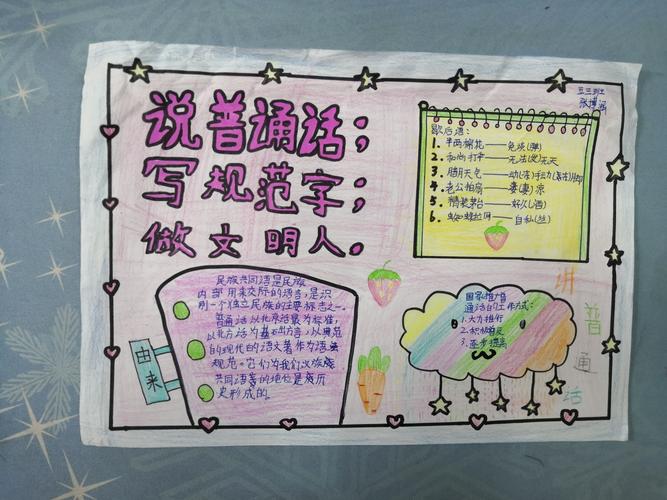 说普诵话；
写规范字；
做文明人。
五三班
张博涵
歇后语：
1. 半两棉花——免谈(弹)
2. 和尚打伞——无法(发)无天
3. 腊月天气——动(冻)手动(冻)脚
4. 老公拍扇——妻(凄)凉
5. 精装茅台——好久(酒)
6. 蜘蛛拉网——自私(丝)
民族共同语是民族
内部用来交际的语言，是识
别一个独立民族的主要标志之一。
普通话以北京话音为标准，
以北方话为基础方言，以典范
的现代的语文著作为语法
规范。它们为我们汉族
共同语言的地位是族历
史形成的。
由来
国家推
通话的工作方式：
1. 大力推行
2. 积极普及
3. 逐步提高
讲
普
通
话